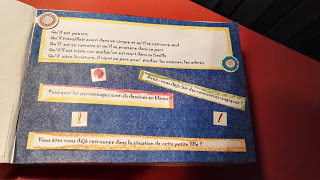 Qu'il est pauvre
Qu'il travaillait avant dans un cirque et qu'il se retrouve seul
Qu'il est en retraite et qu'il se promène dans un parc
Qu'il est triste car quelqu'un est mort dans sa famille
Qu'il aime la nature, il vient au parc pour étudier les oiseaux, les arbres
Avez-vous déjà fait des rencontres magiques ?
Pourquoi les personnages sont-ils dessinés en blanc ?
! !
Vous êtes vous déjà retrouvée dans la situation de cette petite fille ?